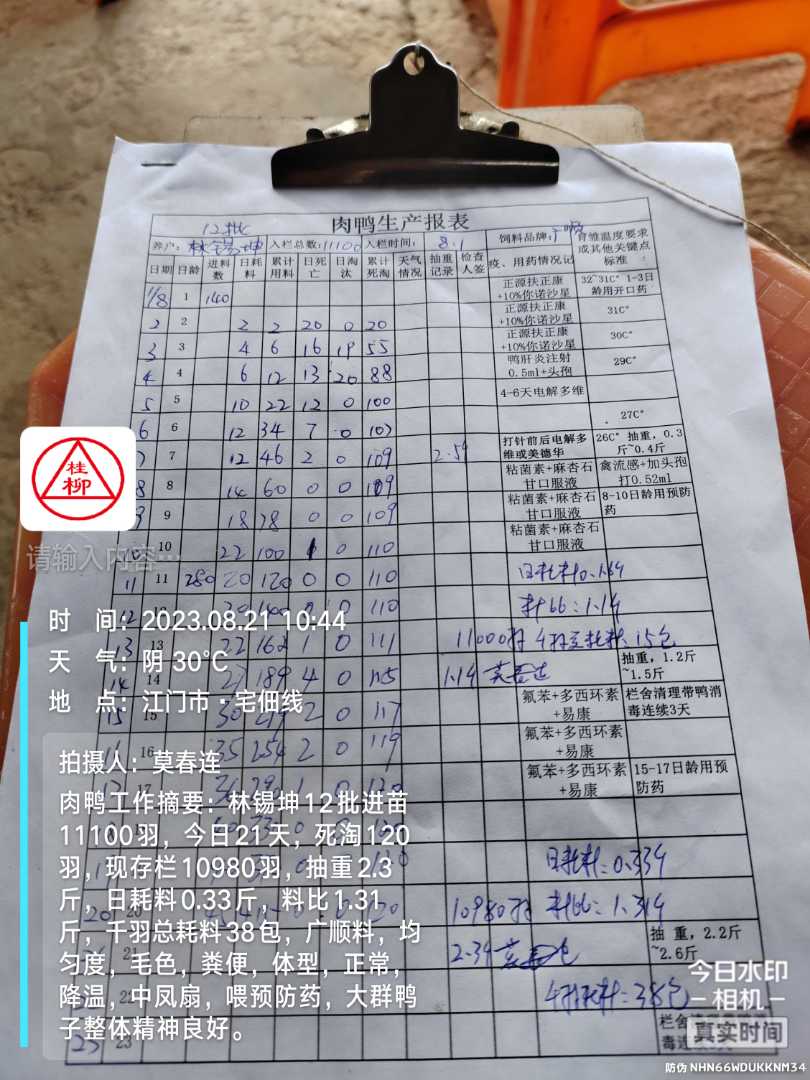 肉鸭生产报表
12批
养户: 林锡坤 入栏总数: 11100 入栏时间: 8.1 饲料品牌: 育雏温度要求或其他关键点标准
日期 日龄 进料数 日耗料 累计用料 日死亡 日淘汰 累计死淘 天气情况 抽重记录 检查人签 疫、用药情况记
1/8 1 140 正源扶正康+10%你诺沙星 32~31C° 1-3日龄用开口药
2 2 2 2 20 0 20 正源扶正康+10%你诺沙星 31C°
3 3 4 6 16 19 55 正源扶正康+10%你诺沙星 30C°
4 4 6 12 13 20 88 鸭肝炎注射0.5ml+头孢 29C°
5 5 10 22 12 0 100 4-6天电解多维
6 6 12 34 7 0 107 27C°
7 7 12 46 2 0 109 打针前后电解多维或美德华 26C° 抽重,0.3斤~0.4斤
8 8 14 60 0 0 109 粘菌素+麻杏石甘口服液 禽流感+加头孢打0.52ml
9 9 18 78 0 0 109 粘菌素+麻杏石甘口服液 8-10日龄用预防药
10 10 22 100 1 0 110 粘菌素+麻杏石甘口服液
11 11 280 20 120 0 0 110
0 110 料比: 1.14
13 13 22 162 1 0 111 11000羽 15包
14 14 27 189 4 0 115 1.14 莫春连 抽重,1.2斤~1.5斤
15 15 2 0 117 氟苯+多西环素+易康 栏舍清理带鸭消毒连续3天
16 35 254 2 0 119 氟苯+多西环素+易康
17 氟苯+多西环素+易康 15-17日龄用预防药
日耗料: 0.33斤
20 20 0 120 10980羽 料比: 1.31斤
21 2.3斤 抽重,2.2斤~2.6斤
22 38包
23 23
桂柳
请输入内容…
时 间: 2023.08.21 10:44
天 气: 阴 30℃
地 点: 江门市·宅佃线
拍摄人: 莫春连
肉鸭工作摘要: 林锡坤12批进苗
11100羽,今日21天,死淘120
羽,现存栏10980羽,抽重2.3
斤,日耗料0.33斤,料比1.31
斤,千羽总耗料38包,广顺料,均
匀度,毛色,粪便,体型,正常,
降温,中凤扇,喂预防药,大群鸭
子整体精神良好。
今日水印
相机
真实时间
防伪 NHN66WDUKKNM34